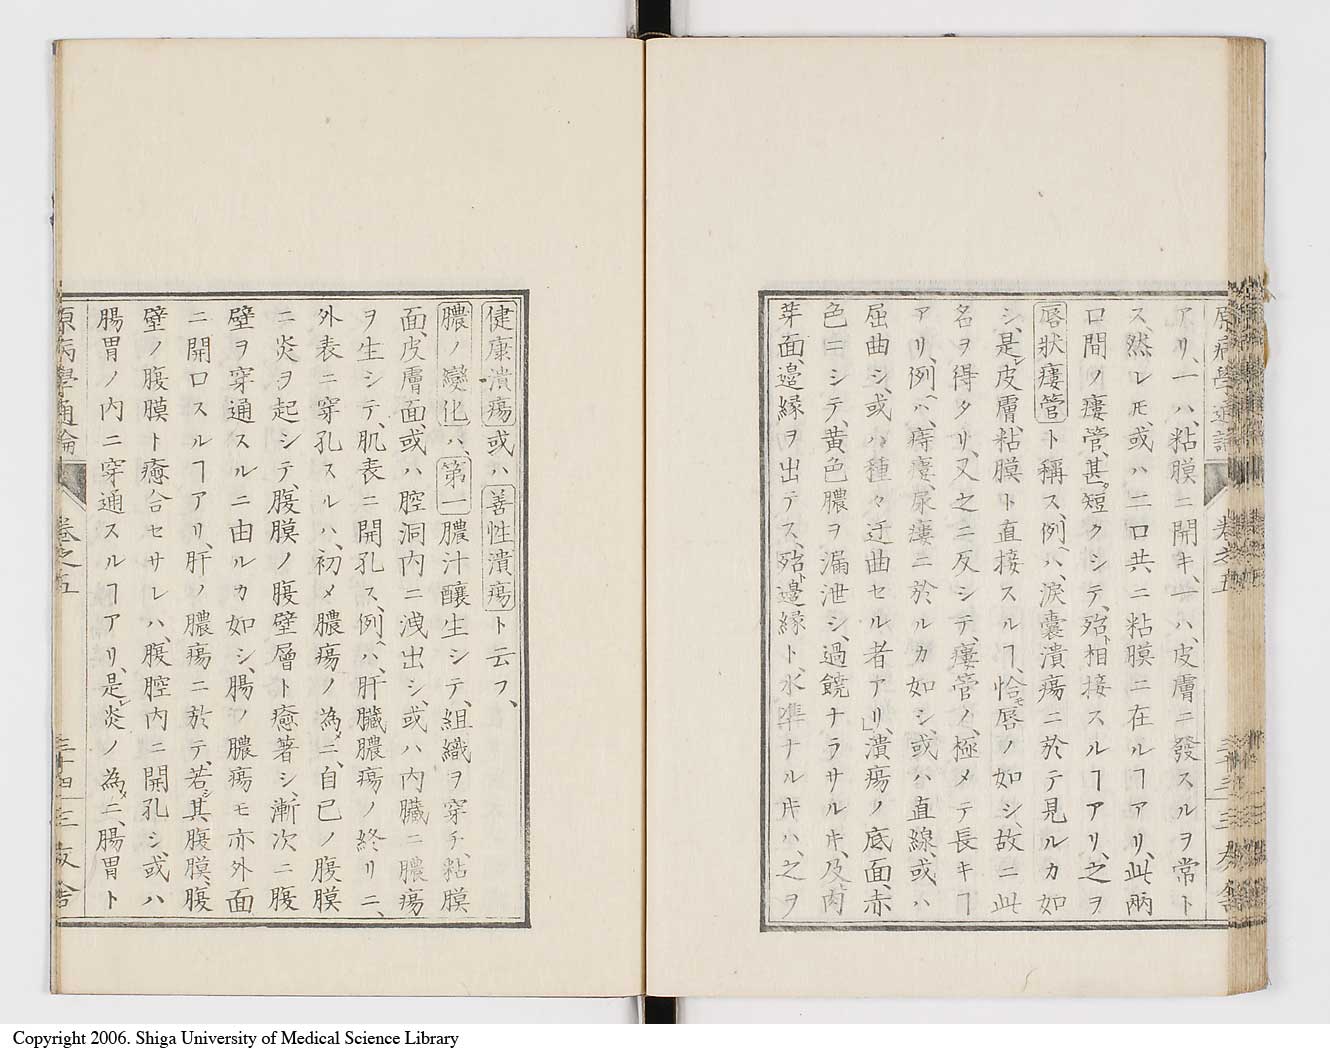 アリ、一ハ、粘膜ニ開キ、一ハ、皮膚ニ發スルヲ常ト
ス、然レ𪜈、或ハ二口共ニ粘膜ニ在ルヿアリ、此兩
口間ノ瘻管、甚短クシテ、殆ト相接スルヿアリ、之ヲ
唇狀瘻管ト稱ス、例ヘハ、淚囊潰瘍ニ於テ見ルカ如
シ、是レ皮膚、粘膜ト直接スルヿ、恰モ唇ノ如シ、故ニ此
名ヲ得タリ、又之ニ反シテ、瘻管ノ、極メテ長キヿ
アリ、例ヘハ、痔瘻、尿瘻ニ於ルカ如シ、或ハ直線、或ハ
屈曲シ、或ハ種々迂曲セル者アリ、」潰瘍ノ底面、赤
色ニシテ、黄色膿ヲ漏泄シ、過饒ナラサル𪜈、及肉
芽面、邊緣ヲ出テス、殆ト邊緣ト、水準ナル𪜈ハ、之ヲ
健康潰瘍或ハ善性潰瘍ト云フ、
膿ノ變化ハ、第一膿汁釀生シテ、組織ヲ穿チ、粘膜
面、皮膚面、或ハ腔洞内ニ洩出シ、或ハ内臟ニ膿瘍
ヲ生シテ、肌表ニ開孔ス、例ヘハ、肝臟膿瘍ノ終リニ、
外表ニ穿孔スルハ、初メ膿瘍ノ為メニ、自己ノ腹膜
ニ炎ヲ起シテ、腹膜ノ腹壁層ト癒著シ、漸次ニ腹
壁ヲ穿通スルニ由ルカ如シ、腸ノ膿瘍モ亦外面
ニ開口スルヿアリ、肝ノ膿瘍ニ於テ、若シ其腹膜、腹
壁ノ腹膜ト癒合セサレハ、腹腔内ニ開孔シ、或ハ
腸胃ノ内ニ穿通スルヿアリ、是レ炎ノ為メニ、腸胃ト
原病學通論
卷之五
三十四
Copyright 2006. Shiga University of Medical Science Library